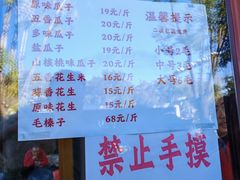 原味瓜子 19元/斤
五香瓜子 20元/斤
多味瓜子 20元/斤
盐瓜子 19元/斤
山核桃味瓜子 20元/斤
五香花生米 16元/斤
蒜香花生 15元/斤
原味花生 15元/斤
毛榛子 68元/斤
温馨提示
小号2毛
中号3毛
大号5毛
禁止手摸